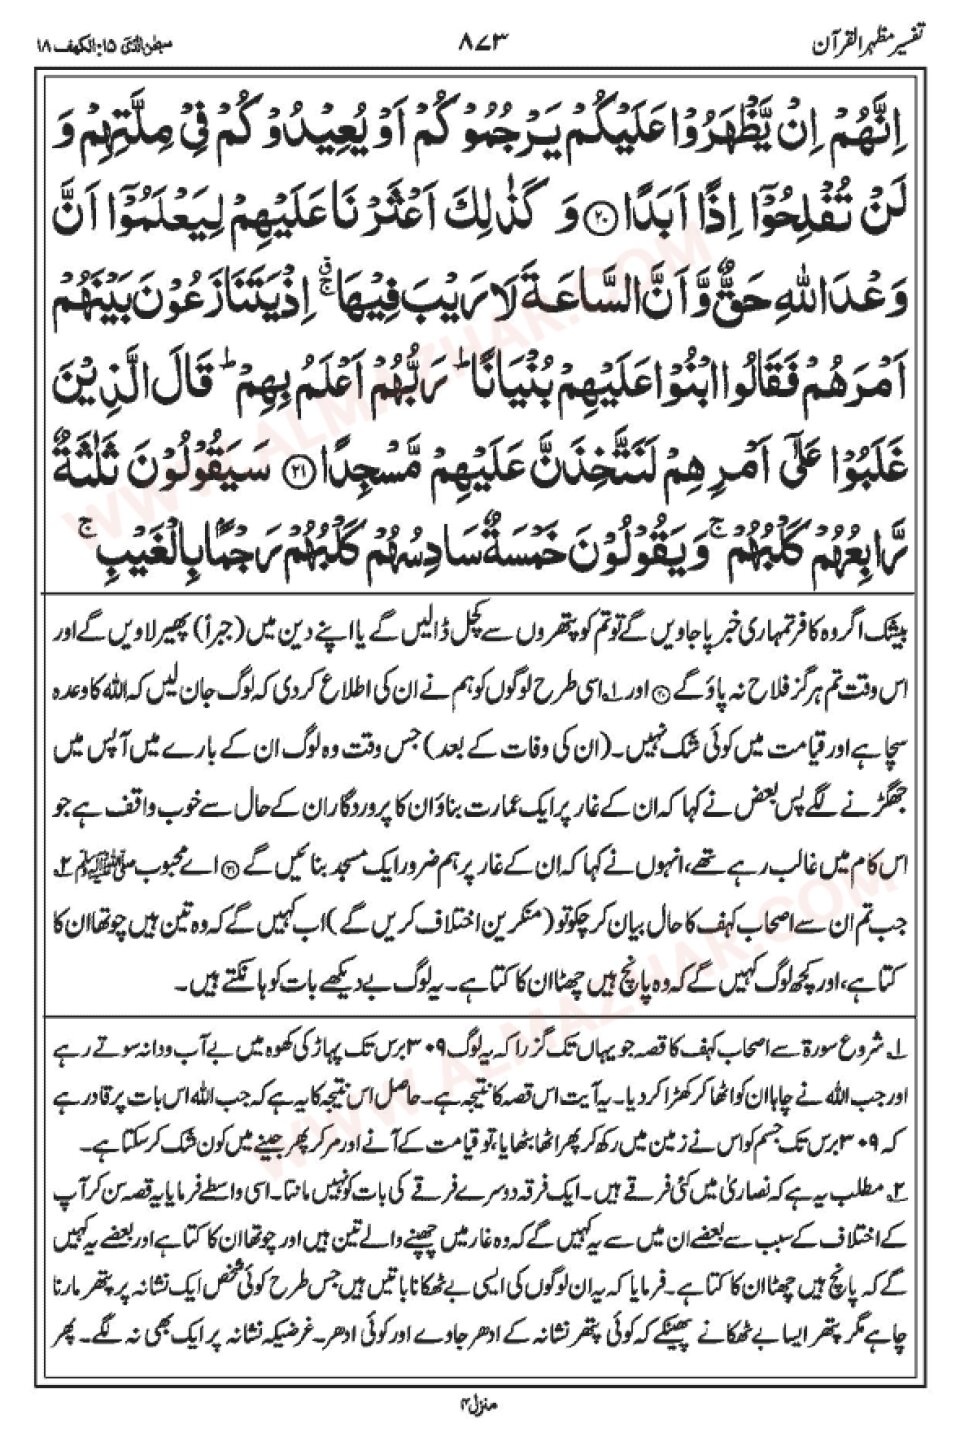 تفسیر مظہر القرآن
۸۷۳
سبحٰن الذی ۱۵: الکھف ۱۸
اِنَّهُمْ اِنْ يَّظْهَرُوْا عَلَيْكُمْ يَرْجُمُوْكُمْ اَوْ يُعِيْدُوْكُمْ فِيْ مِلَّتِهِمْ وَ
لَنْ تُفْلِحُوْٓا اِذًا اَبَدًا ۝۲۰ وَ كَذٰلِكَ اَعْثَرْنَا عَلَيْهِمْ لِيَعْلَمُوْٓا اَنَّ
وَعْدَ اللّٰهِ حَقٌّ وَّ اَنَّ السَّاعَةَ لَا رَيْبَ فِيْهَا ۚ اِذْ يَتَنَازَعُوْنَ بَيْنَهُمْ
اَمْرَهُمْ فَقَالُوا ابْنُوْا عَلَيْهِمْ بُنْيَانًا ؕ رَبُّهُمْ اَعْلَمُ بِهِمْ ؕ قَالَ الَّذِيْنَ
غَلَبُوْا عَلٰٓى اَمْرِهِمْ لَنَتَّخِذَنَّ عَلَيْهِمْ مَّسْجِدًا ۝۲۱ سَيَقُوْلُوْنَ ثَلٰثَةٌ
رَّابِعُهُمْ كَلْبُهُمْ ۚ وَ يَقُوْلُوْنَ خَمْسَةٌ سَادِسُهُمْ كَلْبُهُمْ رَجْمًۢا بِالْغَيْبِ ۚ
بیشک اگر وہ کافر تمہاری خبر پا جاویں گے تو تم کو پتھروں سے کچل ڈالیں گے یا اپنے دین میں (جبراً) پھیر لاویں گے اور
اس وقت تم ہرگز فلاح نہ پاؤ گے ۝۲۰ اور ۱؎ اسی طرح لوگوں کو ہم نے ان کی اطلاع کر دی کہ لوگ جان لیں کہ اللہ کا وعدہ
سچا ہے اور قیامت میں کوئی شک نہیں۔ (ان کی وفات کے بعد) جس وقت وہ لوگ ان کے بارے میں آپس میں
جھگڑنے لگے پس بعض نے کہا کہ ان کے غار پر ایک عمارت بناؤ ان کا پروردگار ان کے حال سے خوب واقف ہے جو
اس کام میں غالب رہے تھے، انہوں نے کہا کہ ان کے غار پر ہم ضرور ایک مسجد بنائیں گے ۝۲۱ اے محبوب ﷺ ۲؎
جب تم ان سے اصحاب کہف کا حال بیان کر چکو تو (منکرین اختلاف کریں گے) اب کہیں گے کہ وہ تین ہیں چوتھا ان کا
کتا ہے، اور کچھ لوگ کہیں گے کہ وہ پانچ ہیں چھٹا ان کا کتا ہے۔ یہ لوگ بے دیکھے بات کو ہانکتے ہیں۔
۱؎ شروع سورۃ سے اصحاب کہف کا قصہ جو یہاں تک گزرا کہ یہ لوگ ۳۰۹ برس تک پہاڑ کی کھوہ میں بے آب و دانہ سوتے رہے
اور جب اللہ نے چاہا ان کو اٹھا کر کھڑا کر دیا۔ یہ آیت اس قصہ کا نتیجہ ہے۔ حاصل اس نتیجہ کا یہ ہے کہ جب اللہ اس بات پر قادر ہے
کہ ۳۰۹ برس تک جسم کو اس نے زمین میں رکھ کر پھر اٹھا بٹھایا، تو قیامت کے آنے اور مر کر پھر جینے میں کون شک کر سکتا ہے۔
۲؎ مطلب یہ ہے کہ نصاریٰ میں کئی فرقے ہیں۔ ایک فرقہ دوسرے فرقے کی بات کو نہیں مانتا۔ اسی واسطے فرمایا یہ قصہ سن کر آپ
کے اختلاف کے سبب سے بعضے ان میں سے یہ کہیں گے کہ وہ غار میں چھپنے والے تین ہیں اور چوتھا ان کا کتا ہے اور بعضے یہ کہیں
گے کہ پانچ ہیں چھٹا ان کا کتا ہے۔ فرمایا کہ یہ ان لوگوں کی ایسی بے ٹھکانا باتیں ہیں جس طرح کوئی شخص ایک نشانہ پر پتھر مارنا
چاہے مگر پتھر ایسا بے ٹھکانے پھینکے کہ کوئی پتھر نشانہ کے ادھر جاوے اور کوئی ادھر۔ غرضیکہ نشانہ پر ایک بھی نہ لگے۔ پھر
منزل ۴
WWW.ALMAZHAR.COM
WWW.ALMAZHAR.COM